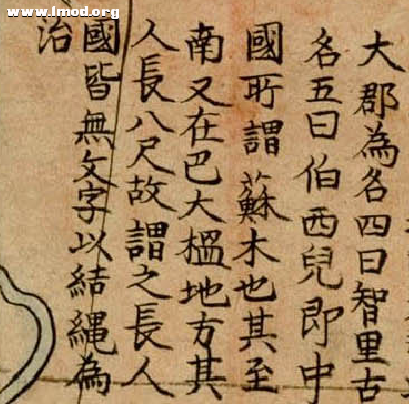 www.lmod.org
大郡為名四曰智里古
名五曰伯西兒即中
國所謂蘇木也其至
南又在巴大榅地方其
人長八尺故謂之長人
國皆無文字以結繩為
治